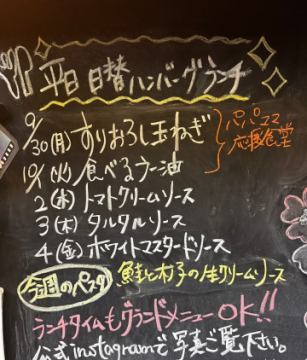 平日 日替ハンバーグランチ
9/30(月) すりおろし玉ねぎ
10/1(火) 食べるラー油
2(水) トマトクリームソース
3(木) タルタルソース
4(金) ホワイトマスタードソース
パパママ
応援食堂
今週のパスタ 鮭とキノ子の生クリームソース
ランチタイムもグランドメニューOK!!
公式instagramで写真ご覧下さい。